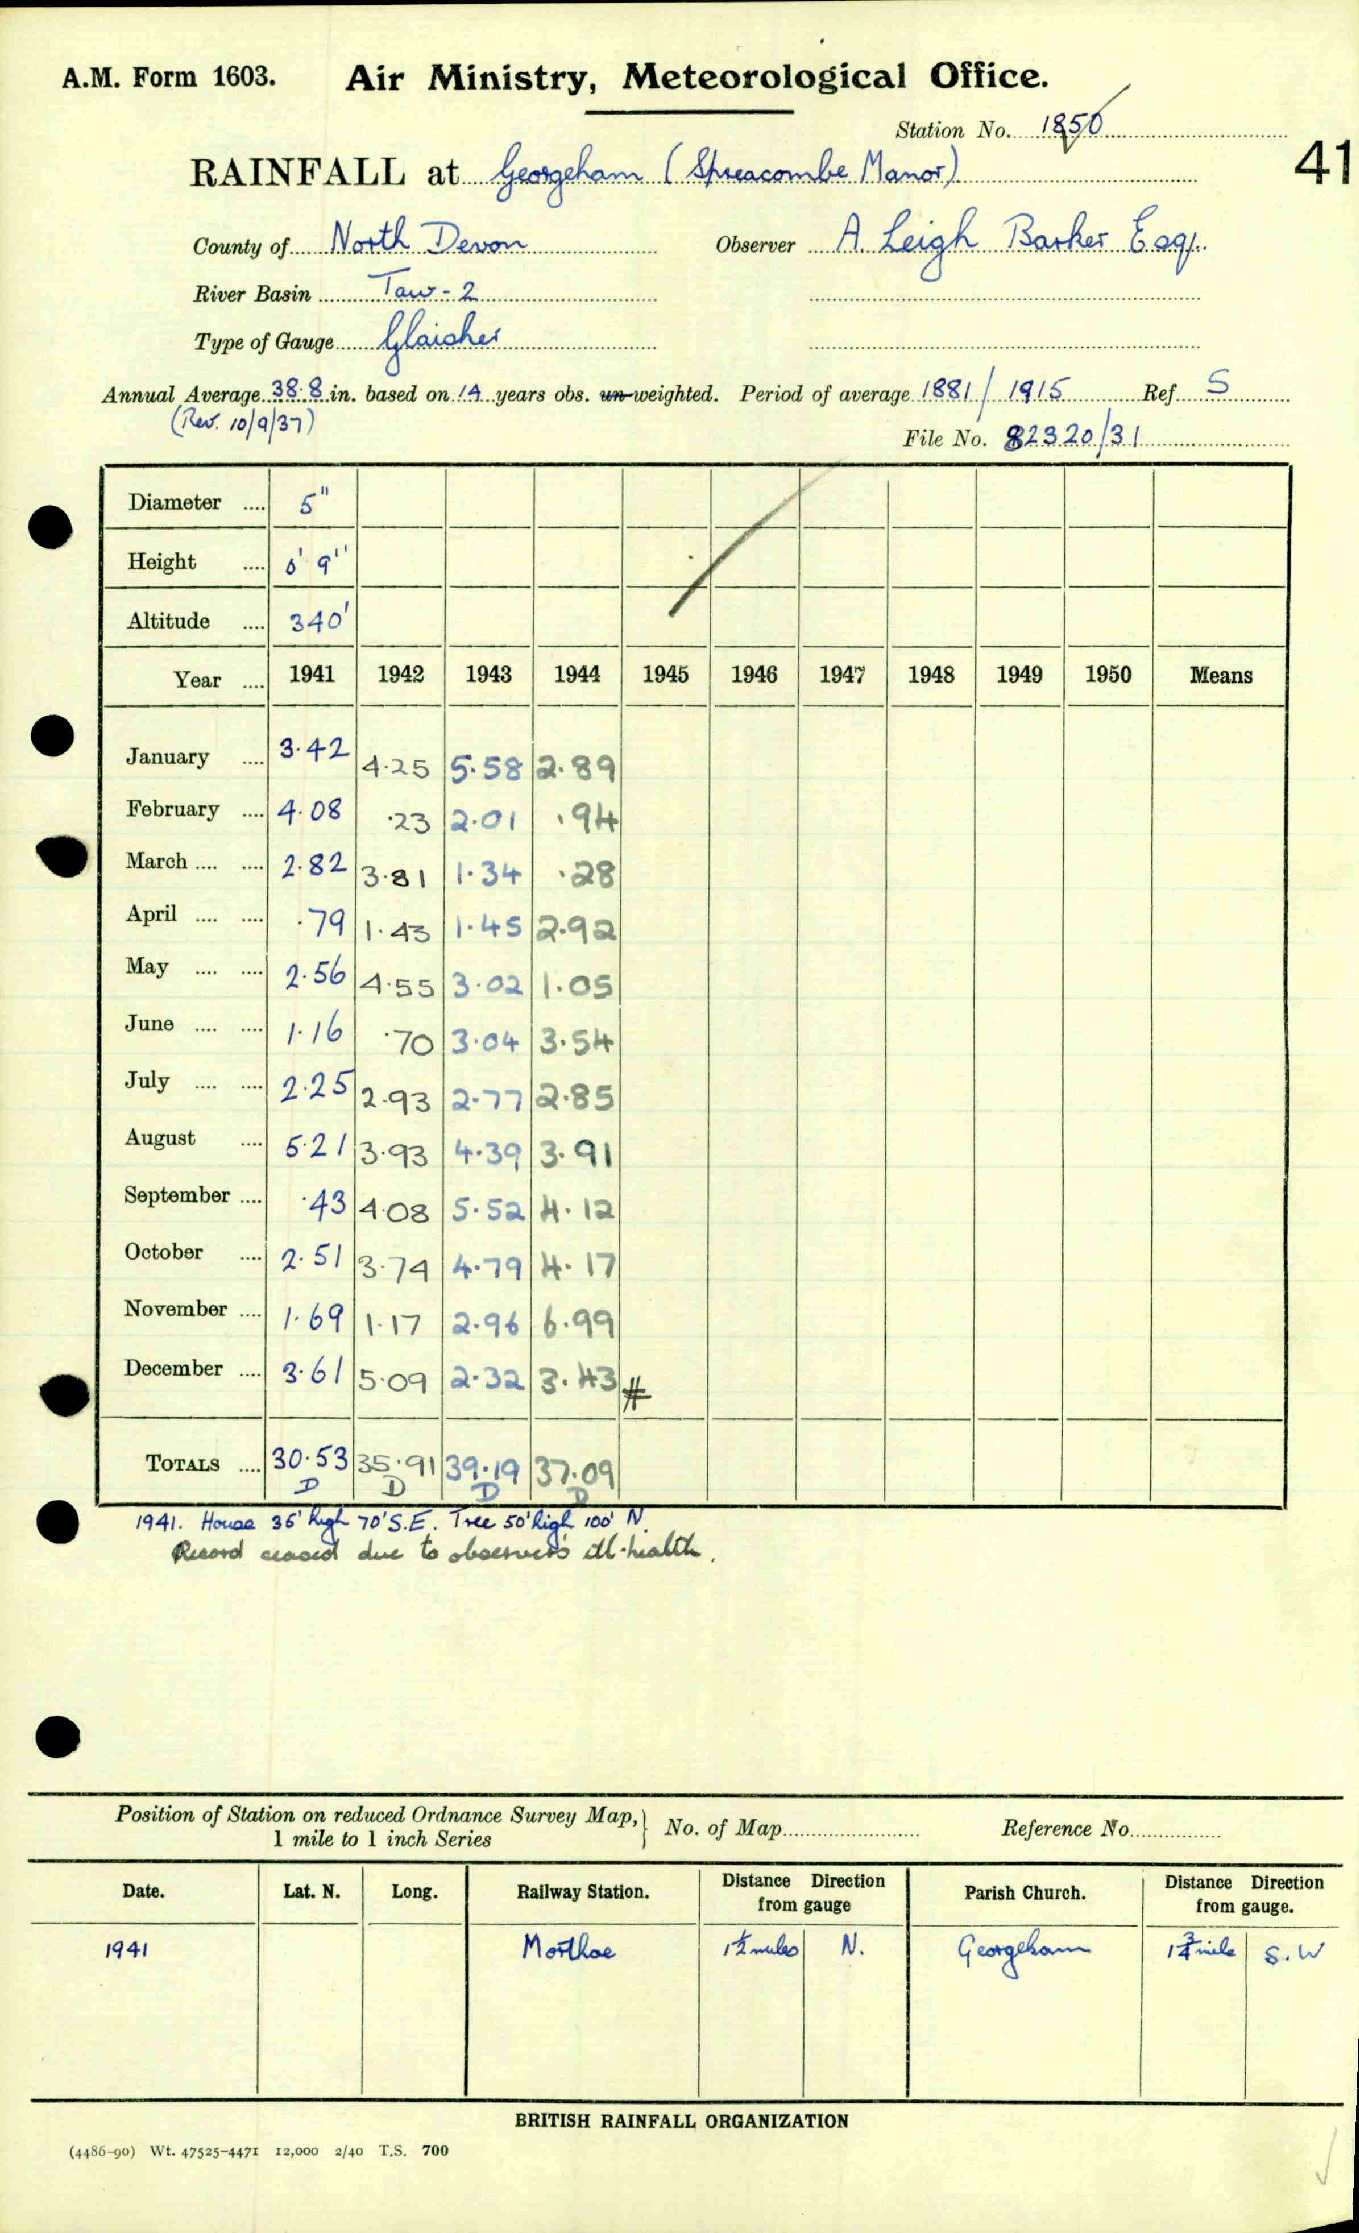 A.M. Form 1603. Air Ministry, Meteorological Office.
Station No. 1850
41
RAINFALL at Georgeham (Spreacombe Manor)
County of North Devon Observer A. Leigh Barker Esq.
River Basin Taw - 2
Type of Gauge Glaisher
Annual Average 38.8 in. based on 14 years obs. un-weighted. Period of average 1881/1915 Ref. S
(Rev. 10/9/37) File No. 82320/31
Diameter .... 5"
Height .... 0' 9"
Altitude .... 340'
Year .... 1941 1942 1943 1944 1945 1946 1947 1948 1949 1950 Means
January .... 3.42 4.25 5.58 2.89
February .... 4.08 .23 2.01 .94
March .... .... 2.82 3.81 1.34 .28
April .... .... .79 1.43 1.45 2.92
May .... .... 2.56 4.55 3.02 1.05
June .... .... 1.16 .70 3.04 3.54
July .... .... 2.25 2.93 2.77 2.85
August .... 5.21 3.93 4.39 3.91
September .... .43 4.08 5.52 4.12
October .... 2.51 3.74 4.79 4.17
November .... 1.69 1.17 2.96 6.99
December .... 3.61 5.09 2.32 3.43 #
TOTALS .... 30.53 35.91 39.19 37.09
D D D D
1941. House 36' high 70' S.E. Tree 50' high 100' N.
Record ceased due to observer's ill-health.
Position of Station on reduced Ordnance Survey Map, } No. of Map Reference No.
1 mile to 1 inch Series
Date. Lat. N. Long. Railway Station. Distance Direction from gauge Parish Church. Distance Direction from gauge.
1941 Morthoe 1½ miles N. Georgeham 1¾ mile S.W
BRITISH RAINFALL ORGANIZATION
(4486-90) Wt. 47525-4471 12,000 2/40 T.S. 700